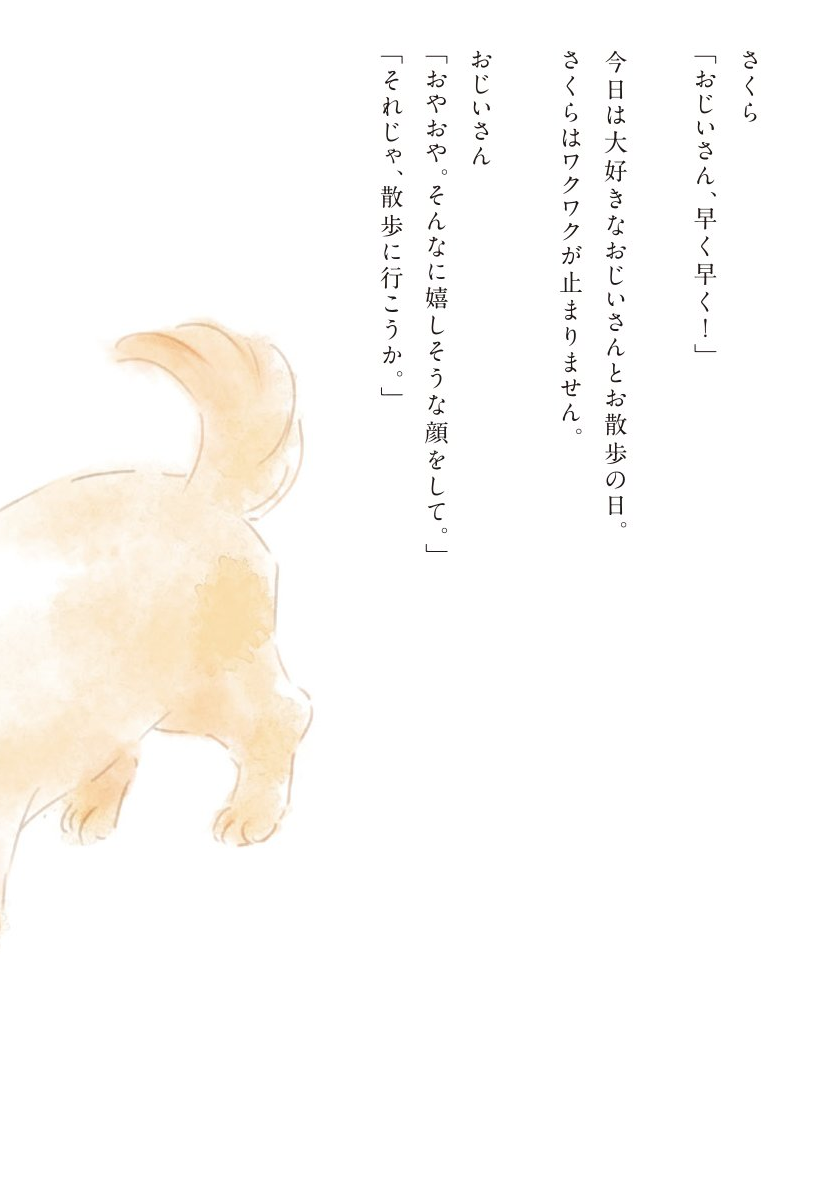 さくら
「おじいさん、早く早く！」
今日は大好きなおじいさんとお散歩の日。
さくらはワクワクが止まりません。
おじいさん
「おやおや。そんなに嬉しそうな顔をして。」
「それじゃ、散歩に行こうか。」